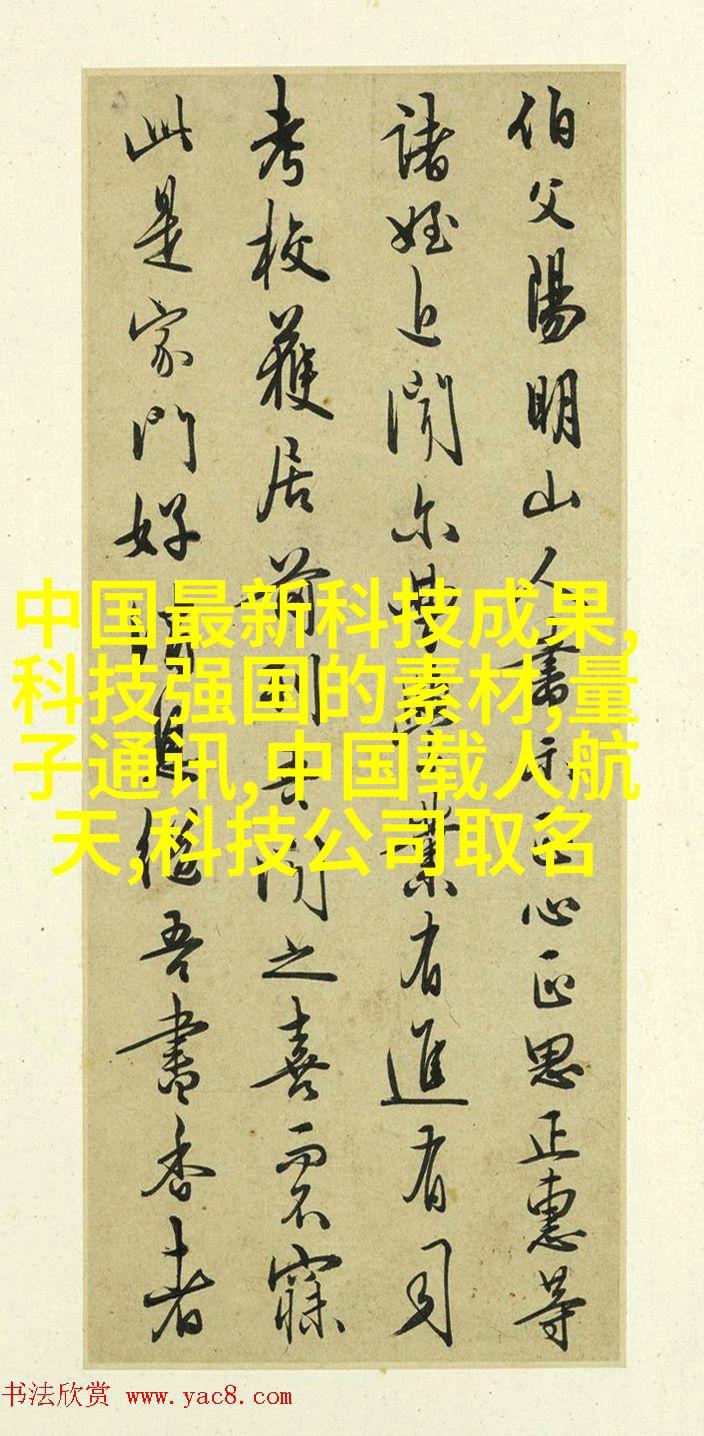 伯父陽明山人書示正心正思正惠等
諸姪近聞尔曹學業有進有司
考校獲居前列吾聞之喜而不寐
此是家門好消息繼吾書香者
中国最新科技成果,
科技强国的素材,量
子通讯,中国载人航
天,科技公司取名
书法欣赏 www.yac8.com